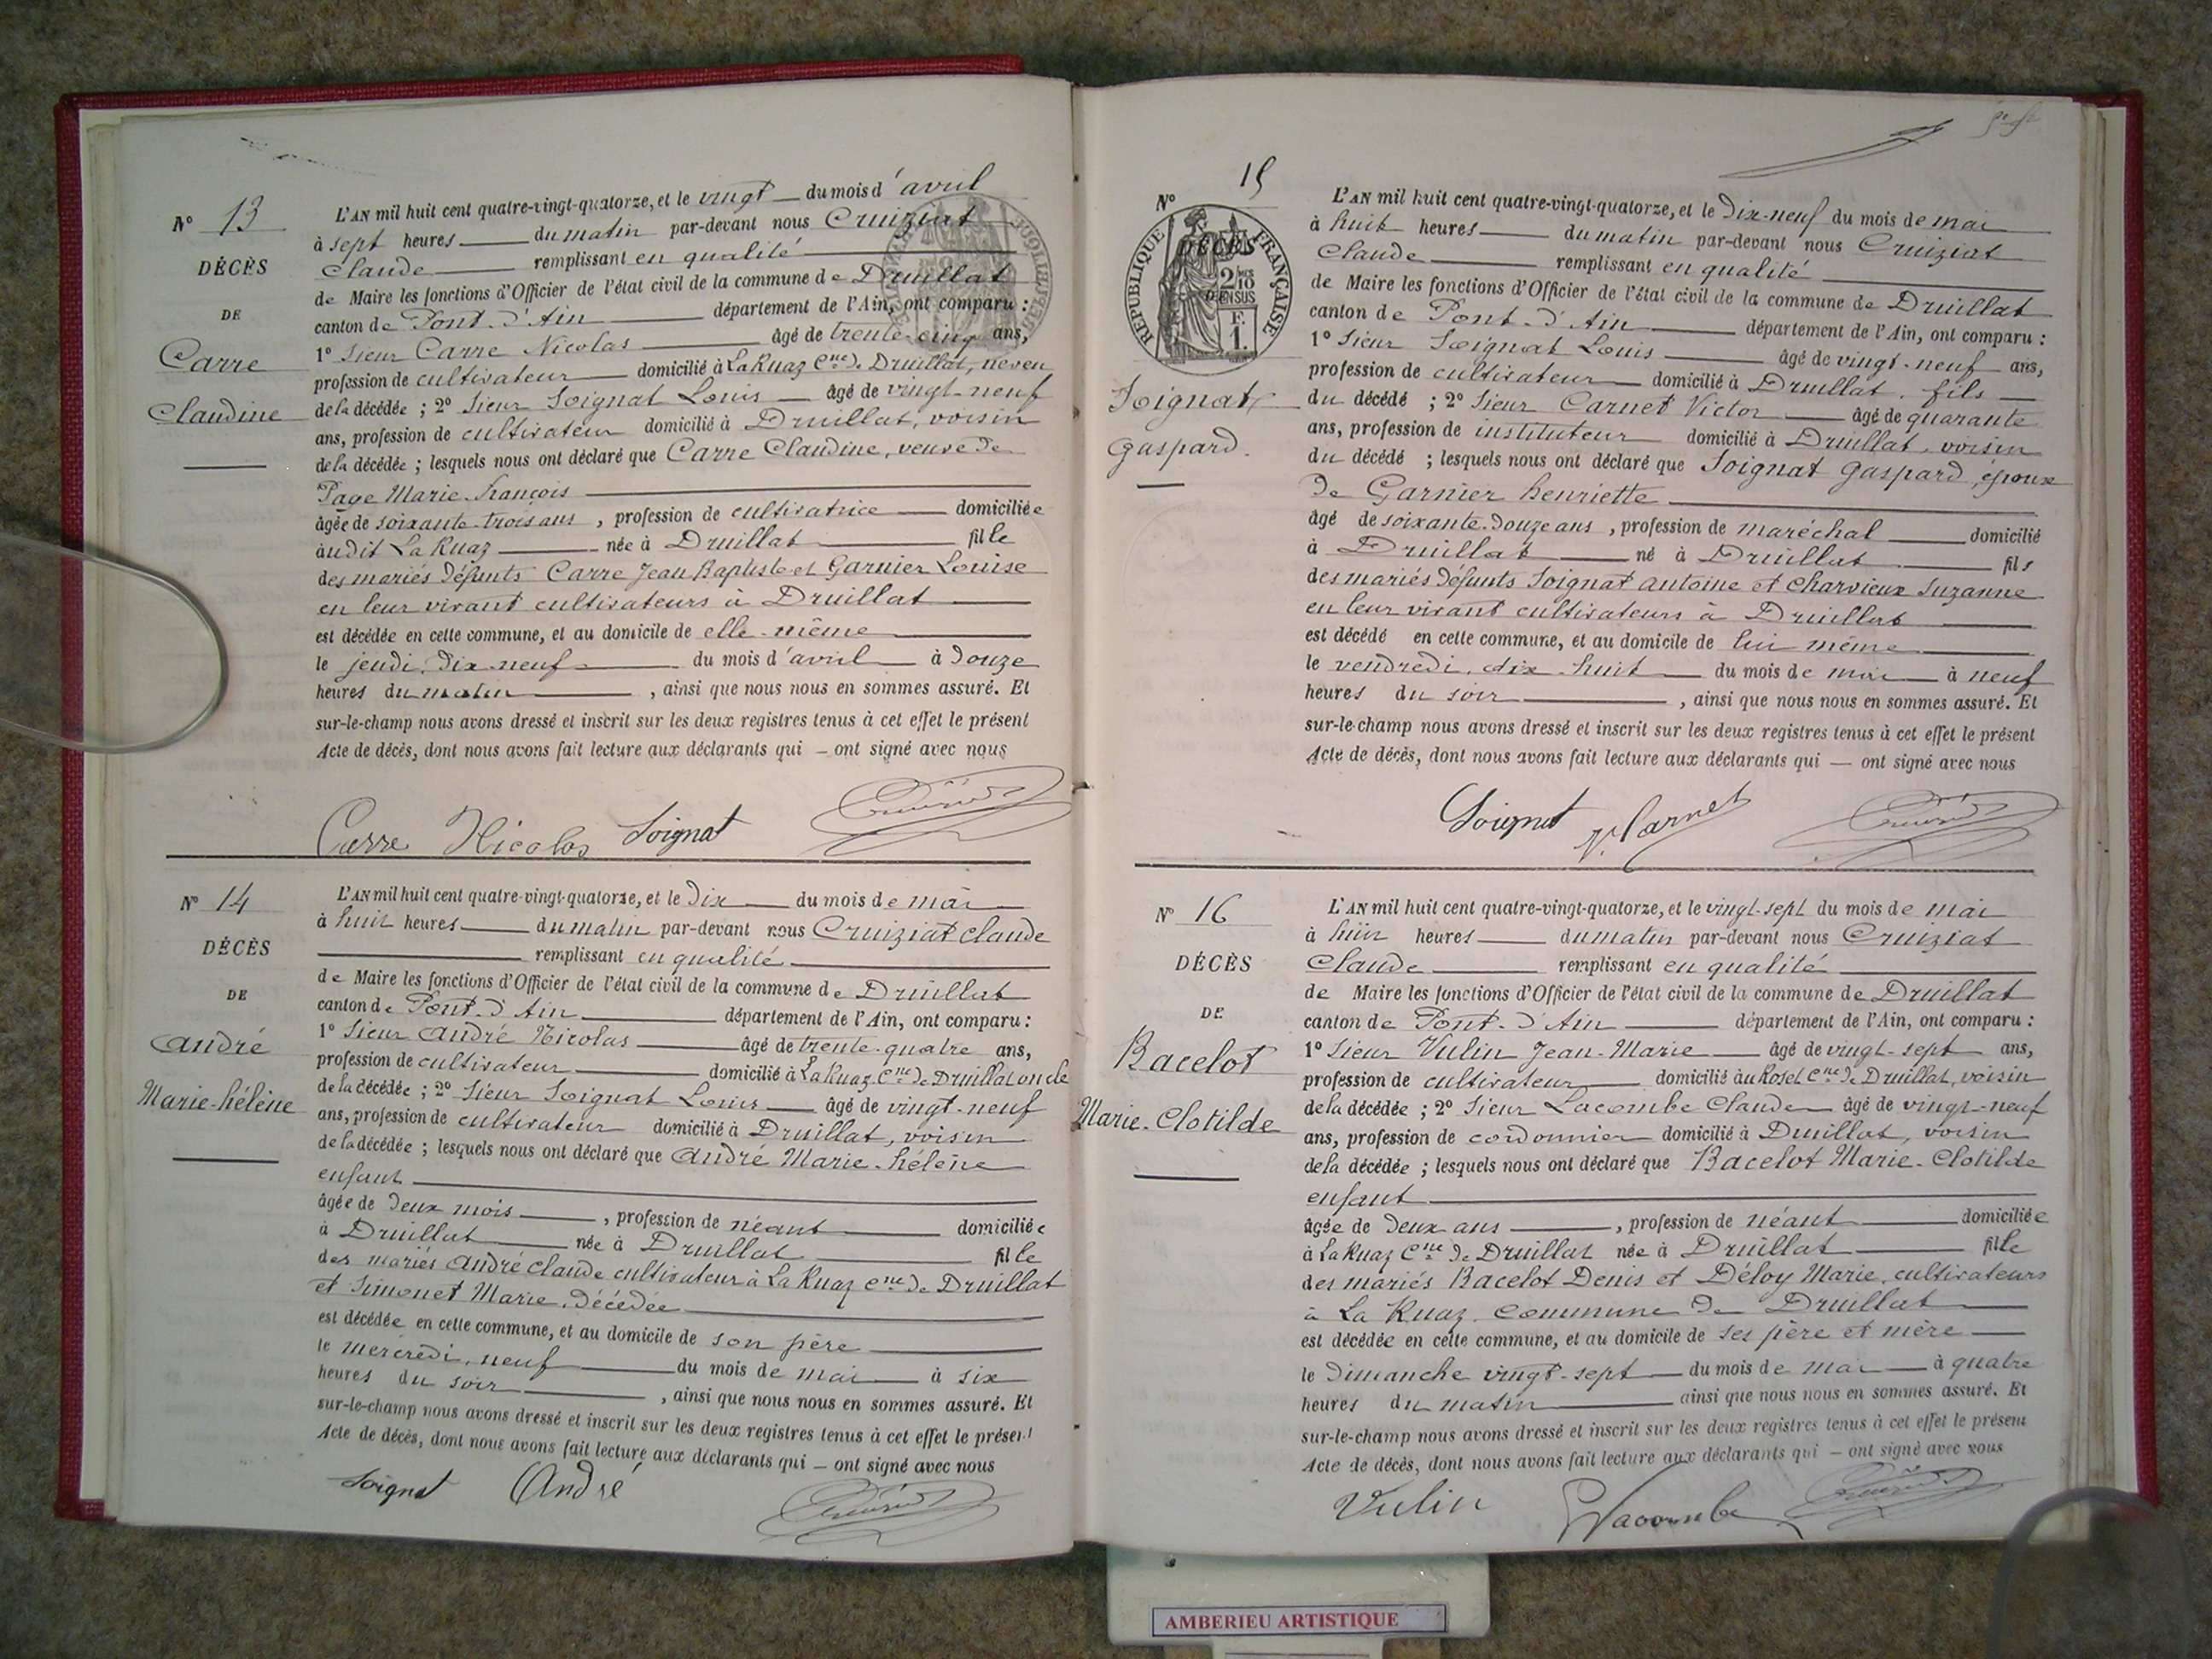 N° 13
DÉCÈS
DE
Carre
Claudine
L'AN mil huit cent quatre-vingt-quatorze, et le vingt du mois d'avril
à sept heures du matin par-devant nous Cruiziat
Claude remplissant en qualité
de Maire les fonctions d'Officier de l'état civil de la commune de Druillat
canton de Pont-d'Ain département de l'Ain, ont comparu :
1° Sieur Carre Nicolas âgé de trente-cinq ans,
profession de cultivateur domicilié à La Ruaz Cne de Druillat, neveu
de la décédée ; 2° Sieur Soignat Louis âgé de vingt-neuf
ans, profession de cultivateur domicilié à Druillat, voisin
de la décédée ; lesquels nous ont déclaré que Carre Claudine, veuve de
Page Marie-François
âgée de soixante-trois ans, profession de cultivatrice domiciliée
audit La Ruaz née à Druillat fille
des mariés défunts Carre Jean Baptiste et Garnier Louise
en leur vivant cultivateurs à Druillat
est décédée en cette commune, et au domicile de elle-même
le jeudi, dix-neuf du mois d'avril à douze
heures du matin, ainsi que nous nous en sommes assuré. Et
sur-le-champ nous avons dressé et inscrit sur les deux registres tenus à cet effet le présent
Acte de décès, dont nous avons fait lecture aux déclarants qui — ont signé avec nous
Carre Nicolas Soignat
N° 14
DÉCÈS
DE
André
Marie-hélène
L'AN mil huit cent quatre-vingt-quatorze, et le dix du mois de mai
à huit heures du matin par-devant nous Cruiziat Claude
remplissant en qualité
de Maire les fonctions d'Officier de l'état civil de la commune de Druillat
canton de Pont-d'Ain département de l'Ain, ont comparu :
1° Sieur André Nicolas âgé de trente-quatre ans,
profession de cultivateur domicilié à La Ruaz Cne de Druillat oncle
de la décédée ; 2° Sieur Soignat Louis âgé de vingt-neuf
ans, profession de cultivateur domicilié à Druillat, voisin
de la décédée ; lesquels nous ont déclaré que André Marie-hélène
enfant
âgée de deux mois, profession de néant domiciliée
à Druillat née à Druillat fille
des mariés André Claude cultivateur à La Ruaz Cne de Druillat
et Simonet Marie, décédée
est décédée en cette commune, et au domicile de son père
le mercredi, neuf du mois de mai à six
heures du soir, ainsi que nous nous en sommes assuré. Et
sur-le-champ nous avons dressé et inscrit sur les deux registres tenus à cet effet le présent
Acte de décès, dont nous avons fait lecture aux déclarants qui — ont signé avec nous
Soignat André
N° 15
RÉPUBLIQUE FRANÇAISE
DÉCÈS
2/10 EN SUS
DE
F. 1.
Soignat
gaspard.
L'AN mil huit cent quatre-vingt-quatorze, et le dix-neuf du mois de mai
à huit heures du matin par-devant nous Cruiziat
Claude remplissant en qualité
de Maire les fonctions d'Officier de l'état civil de la commune de Druillat
canton de Pont-d'Ain département de l'Ain, ont comparu :
1° Sieur Soignat Louis âgé de vingt-neuf ans,
profession de cultivateur domicilié à Druillat, fils
du décédé ; 2° Sieur Carnet Victor âgé de quarante
ans, profession de instituteur domicilié à Druillat, voisin
du décédé ; lesquels nous ont déclaré que Soignat gaspard, époux
de Garnier henriette
âgé de soixante-douze ans, profession de maréchal domicilié
à Druillat né à Druillat fils
des mariés défunts Soignat antoine et Charvieux Suzanne
en leur vivant cultivateurs à Druillat
est décédé en cette commune, et au domicile de lui même
le vendredi, dix-huit du mois de mai à neuf
heures du soir, ainsi que nous nous en sommes assuré. Et
sur-le-champ nous avons dressé et inscrit sur les deux registres tenus à cet effet le présent
Acte de décès, dont nous avons fait lecture aux déclarants qui — ont signé avec nous
Soignat V. Carnet
N° 16
DÉCÈS
DE
Bacelot
Marie-Clotilde
L'AN mil huit cent quatre-vingt-quatorze, et le vingt-sept du mois de mai
à huit heures du matin par-devant nous Cruiziat
Claude remplissant en qualité
de Maire les fonctions d'Officier de l'état civil de la commune de Druillat
canton de Pont-d'Ain département de l'Ain, ont comparu :
1° Sieur Vulin Jean-Marie âgé de vingt-sept ans,
profession de cultivateur domicilié au Cne de Druillat, voisin
de la décédée ; 2° Sieur Lacombe Claude âgé de vingt-neuf
ans, profession de cordonnier domicilié à Druillat, voisin
de la décédée ; lesquels nous ont déclaré que Bacelot Marie-Clotilde
enfant
âgée de deux ans, profession de néant domiciliée
à La Ruaz Cne de Druillat née à Druillat fille
des mariés Bacelot Denis et Déloy Marie, cultivateurs
à La Ruaz, commune de Druillat
est décédée en cette commune, et au domicile de ses père et mère
le dimanche vingt-sept du mois de mai à quatre
heures du matin ainsi que nous nous en sommes assuré. Et
sur-le-champ nous avons dressé et inscrit sur les deux registres tenus à cet effet le présent
Acte de décès, dont nous avons fait lecture aux déclarants qui — ont signé avec nous
Vulin Lacombe
AMBERIEU ARTISTIQUE